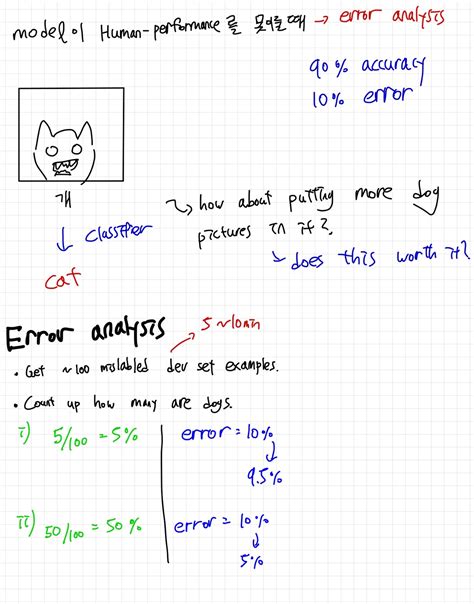 model이 Human-performance를 못이룰때 → error analysis
90% accuracy
10% error
개
↓ classifier
cat
↳ how about putting more dog
pictures in it?
↳ does this worth it?
Error analysis
5~10min
• Get ~100 mislabled dev set examples.
• Count up how many are dogs.
i) 5/100 = 5%
error = 10%
↓
9.5%
ii) 50/100 = 50%
error = 10%
↓
5%